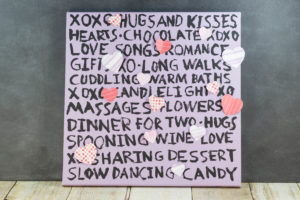 XOXO HUGS AND KISSES
HEARTS · CHOCOLATE XOXO
LOVE SONGS ROMANCE
GIFT XO · LONG WALKS
CUDDLING WARM BATHS
XOXO CANDLELIGHT XO
MASSAGES FLOWERS
DINNER FOR TWO · HUGS
SPOONING WINE LOVE
XO SHARING DESSERT
SLOW DANCING CANDY